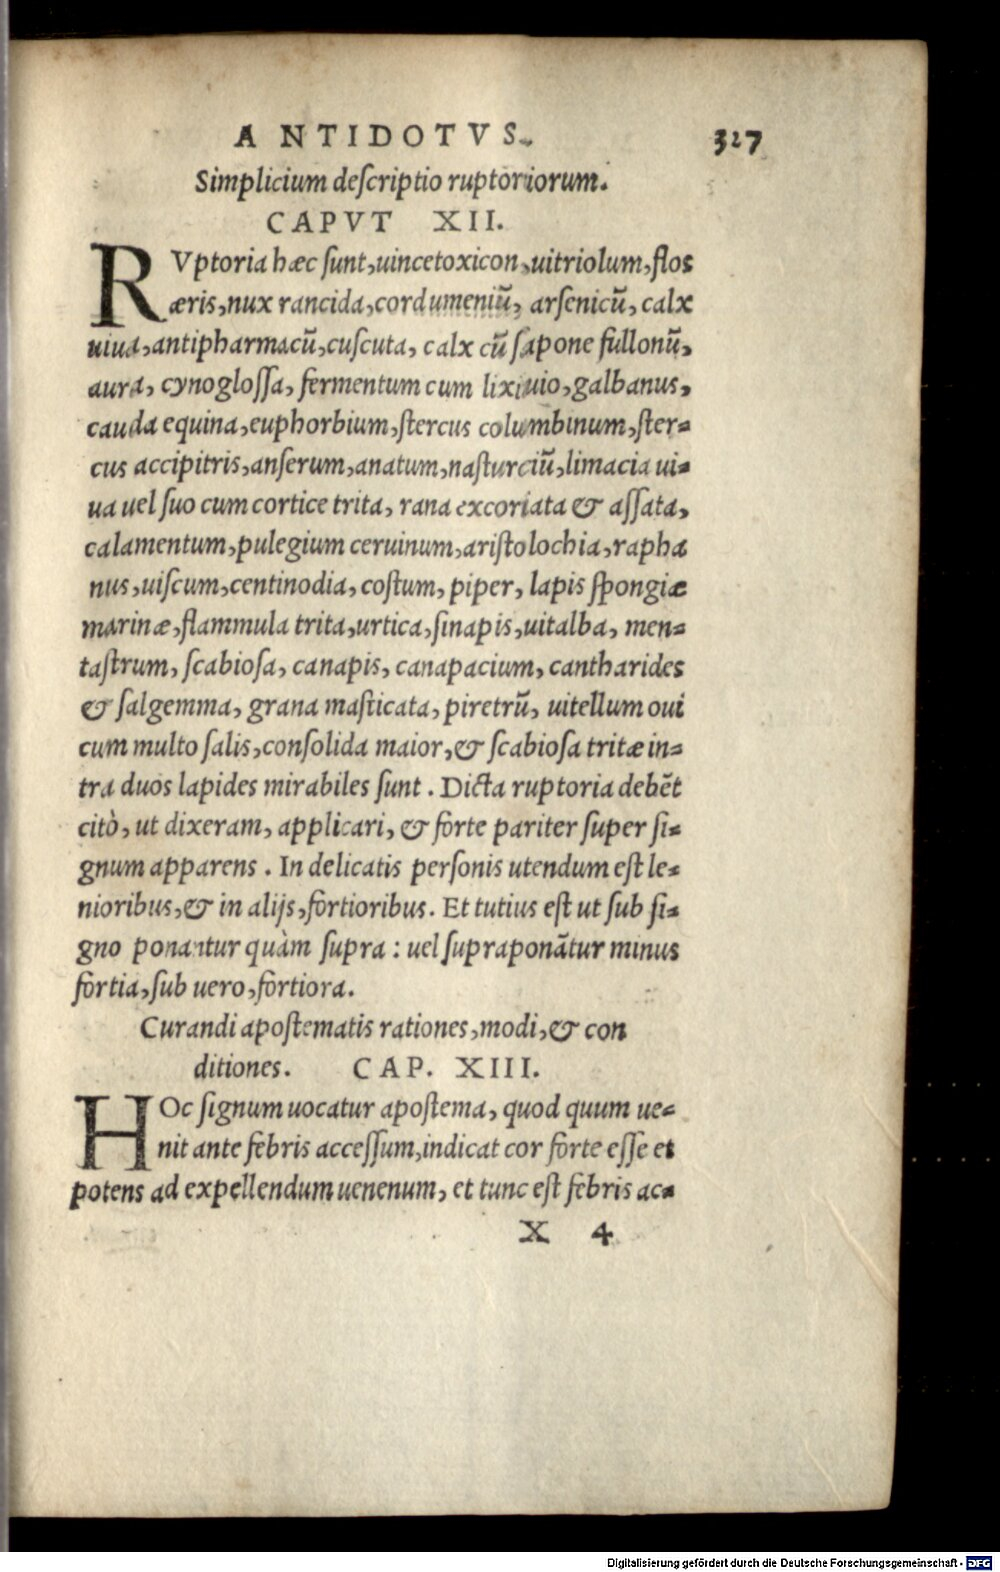 ANTIDOTVS. 327
Simplicium deſcriptio ruptoriorum.
CAPVT XII.
RVptoria hæc ſunt, uincetoxicon, uitriolum, flos
æris, nux rancida, cordumeniũ, arſenicũ, calx
uiua, antipharmacũ, cuſcuta, calx cũ ſapone fullonũ,
aura, cynogloſſa, fermentum cum lixiuio, galbanus,
cauda equina, euphorbium, ſtercus columbinum, ſter-
cus accipitris, anſerum, anatum, naſturciũ, limacia ui-
ua uel ſuo cum cortice trita, rana excoriata & aſſata,
calamentum, pulegium ceruinum, ariſtolochia, rapha
nus, uiſcum, centinodia, coſtum, piper, lapis ſpongiæ
marinæ, flammula trita, urtica, ſinapis, uitalba, men-
taſtrum, ſcabioſa, canapis, canapacium, cantharides
& ſalgemma, grana maſticata, piretrũ, uitellum oui
cum multo ſalis, conſolida maior, & ſcabioſa tritæ in-
tra duos lapides mirabiles ſunt. Dicta ruptoria debẽt
citò, ut dixeram, applicari, & forte pariter ſuper ſi-
gnum apparens. In delicatis perſonis utendum eſt le-
nioribus, & in alijs, fortioribus. Et tutius eſt ut ſub ſi-
gno ponantur quàm ſupra: uel ſupraponãtur minus
fortia, ſub uero, fortiora.
Curandi apoſtematis rationes, modi, & con
ditiones. CAP. XIII.
HOc ſignum uocatur apoſtema, quod quum ue-
nit ante febris acceſſum, indicat cor forte eſſe et
potens ad expellendum uenenum, et tunc eſt febris ac-
X 4
Digitalisierung gefördert durch die Deutsche Forschungsgemeinschaft - DFG